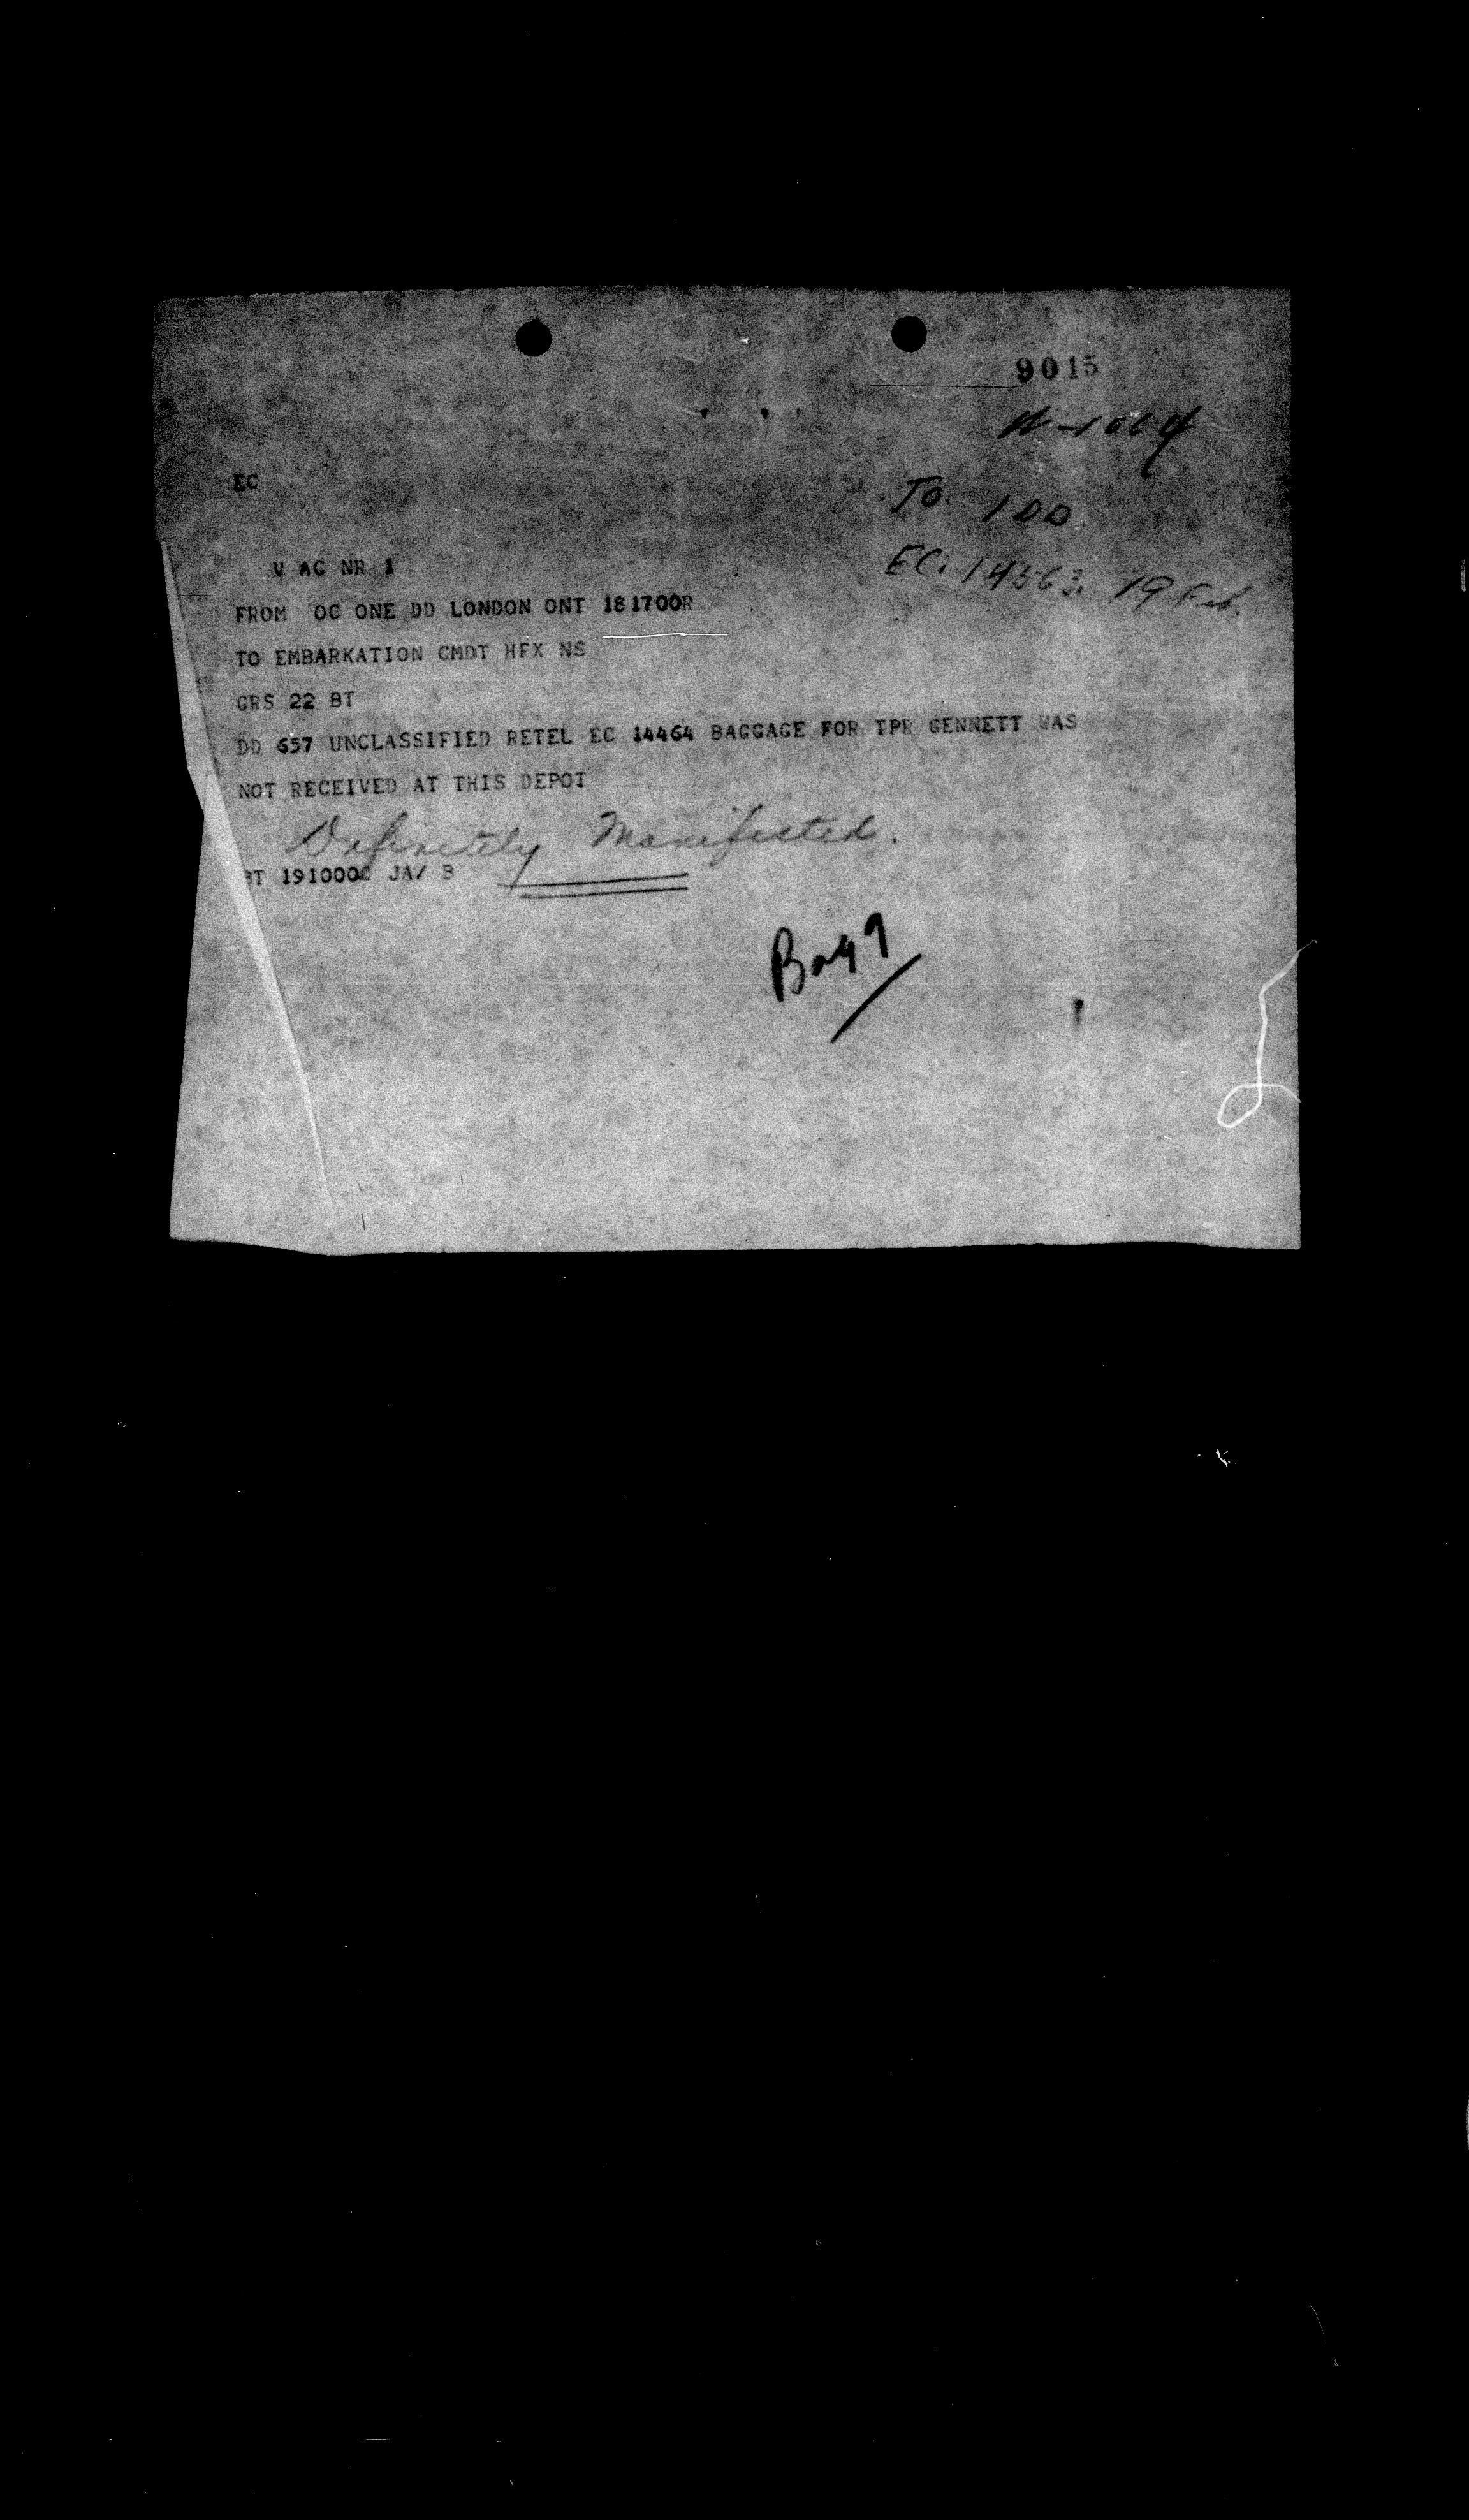 9015
To. 1 DD
EC
EC. 14563. 19 Feb.
V AC NR 1
FROM OC ONE DD LONDON ONT 181700R
TO EMBARKATION CMDT HFX NS
GRS 22 BT
DD 657 UNCLASSIFIED RETEL EC 14464 BAGGAGE FOR TPR GENNETT WAS
NOT RECEIVED AT THIS DEPOT
Definitely Manifested.
BT 191000 JA/ B
Bagg